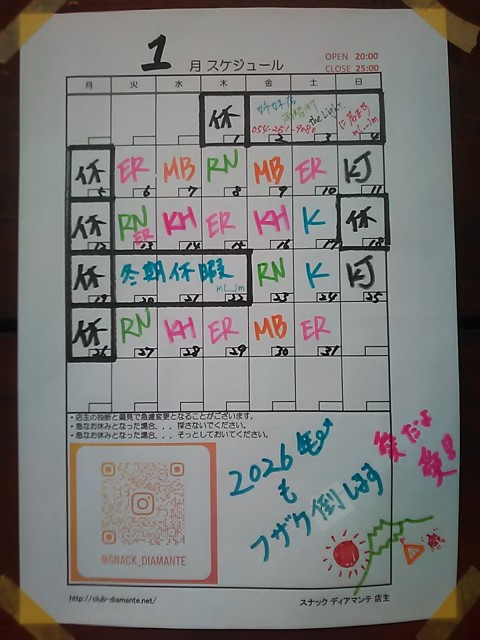 1 月 スケジュール
OPEN 20:00
CLOSE 25:00
月 火 水 木 金 土 日
休 1 2 3 4
054-251-9080 the Light. m(__)m
休 5 ER 6 MB 7 RN 8 MB 9 ER 10 KJ 11
休 12 RN ER 13 KH 14 ER 15 KH 16 K 17 休 18
休 19 冬期休暇 m(__)m 20 21 22 RN 23 K 24 KJ 25
休 26 RN 27 KH 28 ER 29 MB 30 ER 31
・店主の独断と偏見で急遽変更となることがございます。
・急なお休みとなった場合、．．探さないでください。
・急なお休みとなった場合、．．そっとしておいてください。
2026年
も
フザケ倒します
愛だよ
愛里
@SNACK_DIAMANTE
http://club-diamante.net/
スナック ディアマンテ 店主